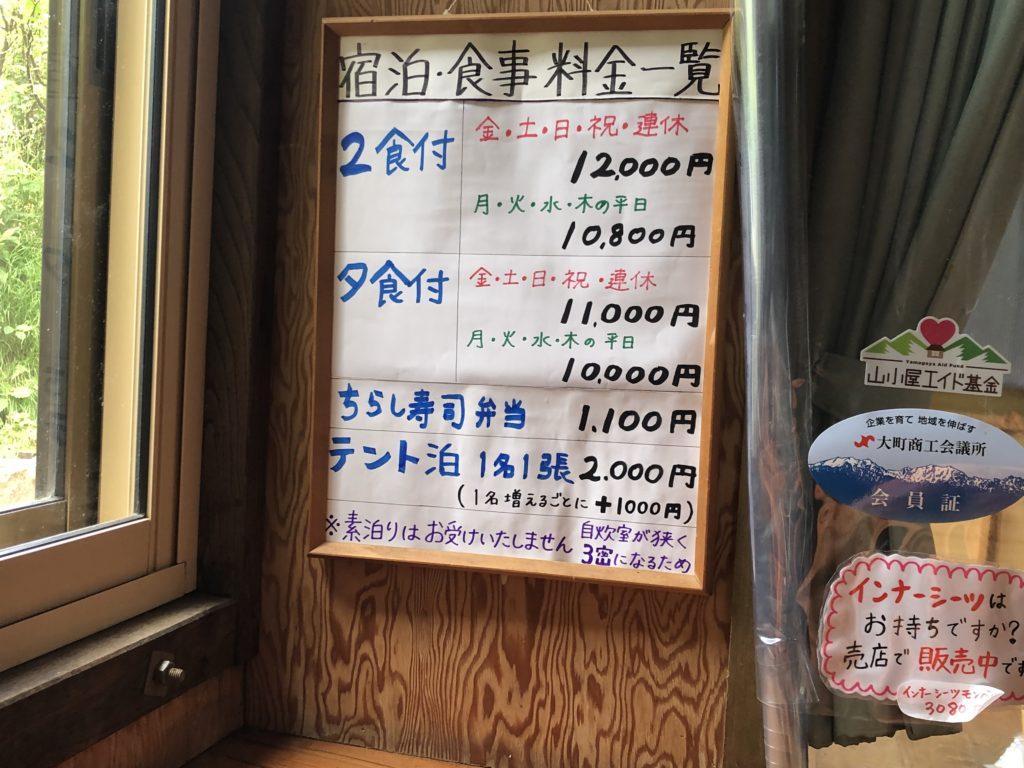 宿泊・食事料金一覧
2食付
金・土・日・祝・連休
12,000円
月・火・水・木の平日
10,800円
夕食付
金・土・日・祝・連休
11,000円
月・火・水・木の平日
10,000円
ちらし寿司弁当 1,100円
テント泊 1名1張 2,000円
(1名増えるごとに+1000円)
※素泊りはお受けいたしません
自炊室が狭く
3密になるため
Yamagoya Aid Fund
山小屋エイド基金
企業を育て 地域を伸ばす
大町商工会議所
会員証
インナーシーツは
お持ちですか?
売店で販売中です
3080